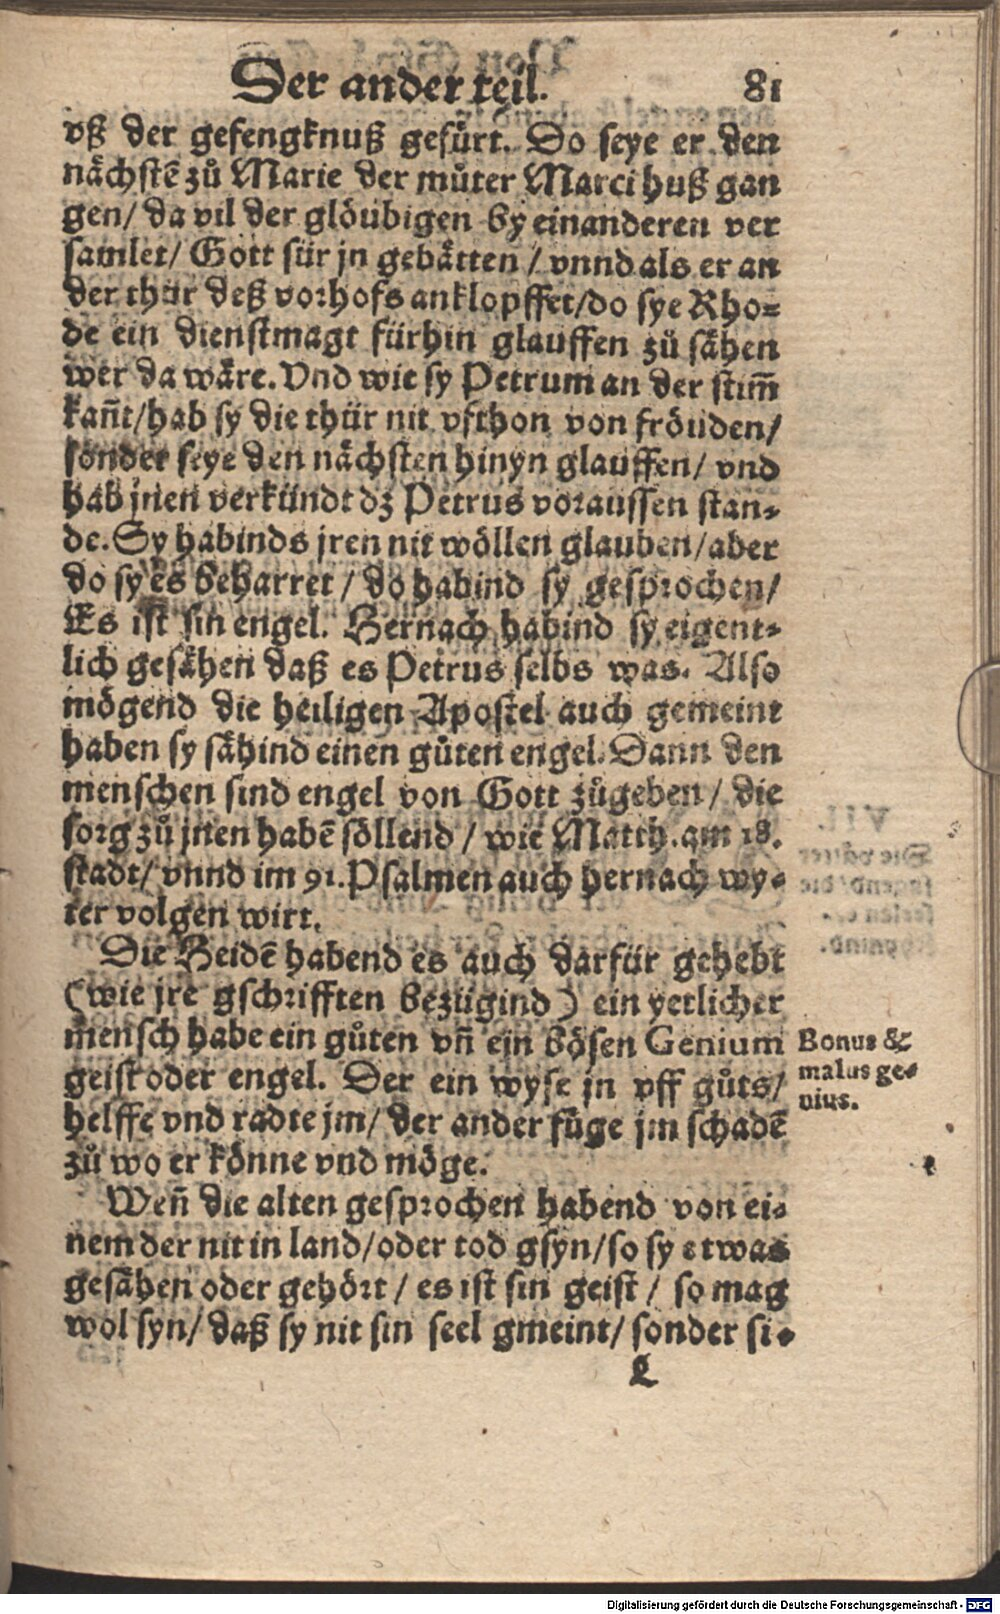 Der ander teil. 81
vß der gefengknuß gefuͤrt. Do seye er den
naͤchstẽ zuͦ Marie der muͦter Marci huß gan
gen/ da vil der gloͤubigen by einanderen ver
samlet/ Gott für jn gebaͤtten / vnnd als er an
der thür deß vorhofs anklopffet/do sye Rho⸗
de ein dienstmagt fürhin glauffen zuͦ saͤhen
wer da waͤre. Vnd wie sy Petrum an der stim̃
kañt/hab sy die thür nit vfthon von froͤuden/
sonder seye den naͤchsten hinyn glauffen/ vnd
hab jnen verkündt dz Petrus voraussen stan⸗
de. Sy habinds jren nit woͤllen glauben/aber
do sy es beharret / do habind sy gesprochen/
Es ist sin engel. Hernach habind sy eigent⸗
lich gesaͤhen daß es Petrus selbs was. Also
moͤgend die heiligen Apostel auch gemeint
haben sy saͤhind einen guͦten engel. Dann den
menschen sind engel von Gott zuͦgeben / die
sorg zuͦ jnen habẽ soͤllend / wie Matth. am 18.
stadt/ vnnd im 91. Psalmen auch hernach wy⸗
ter volgen wirt.
Die Heidẽ habend es auch darfür gehebt
(wie jre gschrifften bezügind) ein yetlicher
mensch habe ein guͦten vñ ein boͤsen Genium
geist oder engel. Der ein wyse jn vff guͦts/
helffe vnd radte jm/ der ander fuͤge jm schadẽ
zuͦ wo er koͤnne vnd moͤge.
Bonus &
malus ge⸗
nius.
Weñ die alten gesprochen habend von ei⸗
nem der nit in land/oder tod gsyn/so sy etwas
gesaͤhen oder gehoͤrt / es ist sin geist / so mag
wol syn/ daß sy nit sin seel gmeint/ sonder si⸗
L
Digitalisierung gefördert durch die Deutsche Forschungsgemeinschaft - DFG